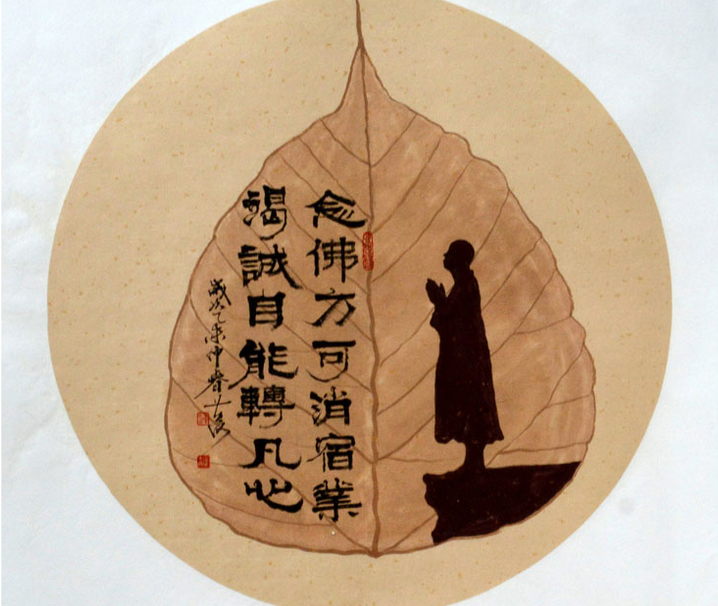 念佛方可消宿業
竭誠自能轉凡心
歲次乙未仲春